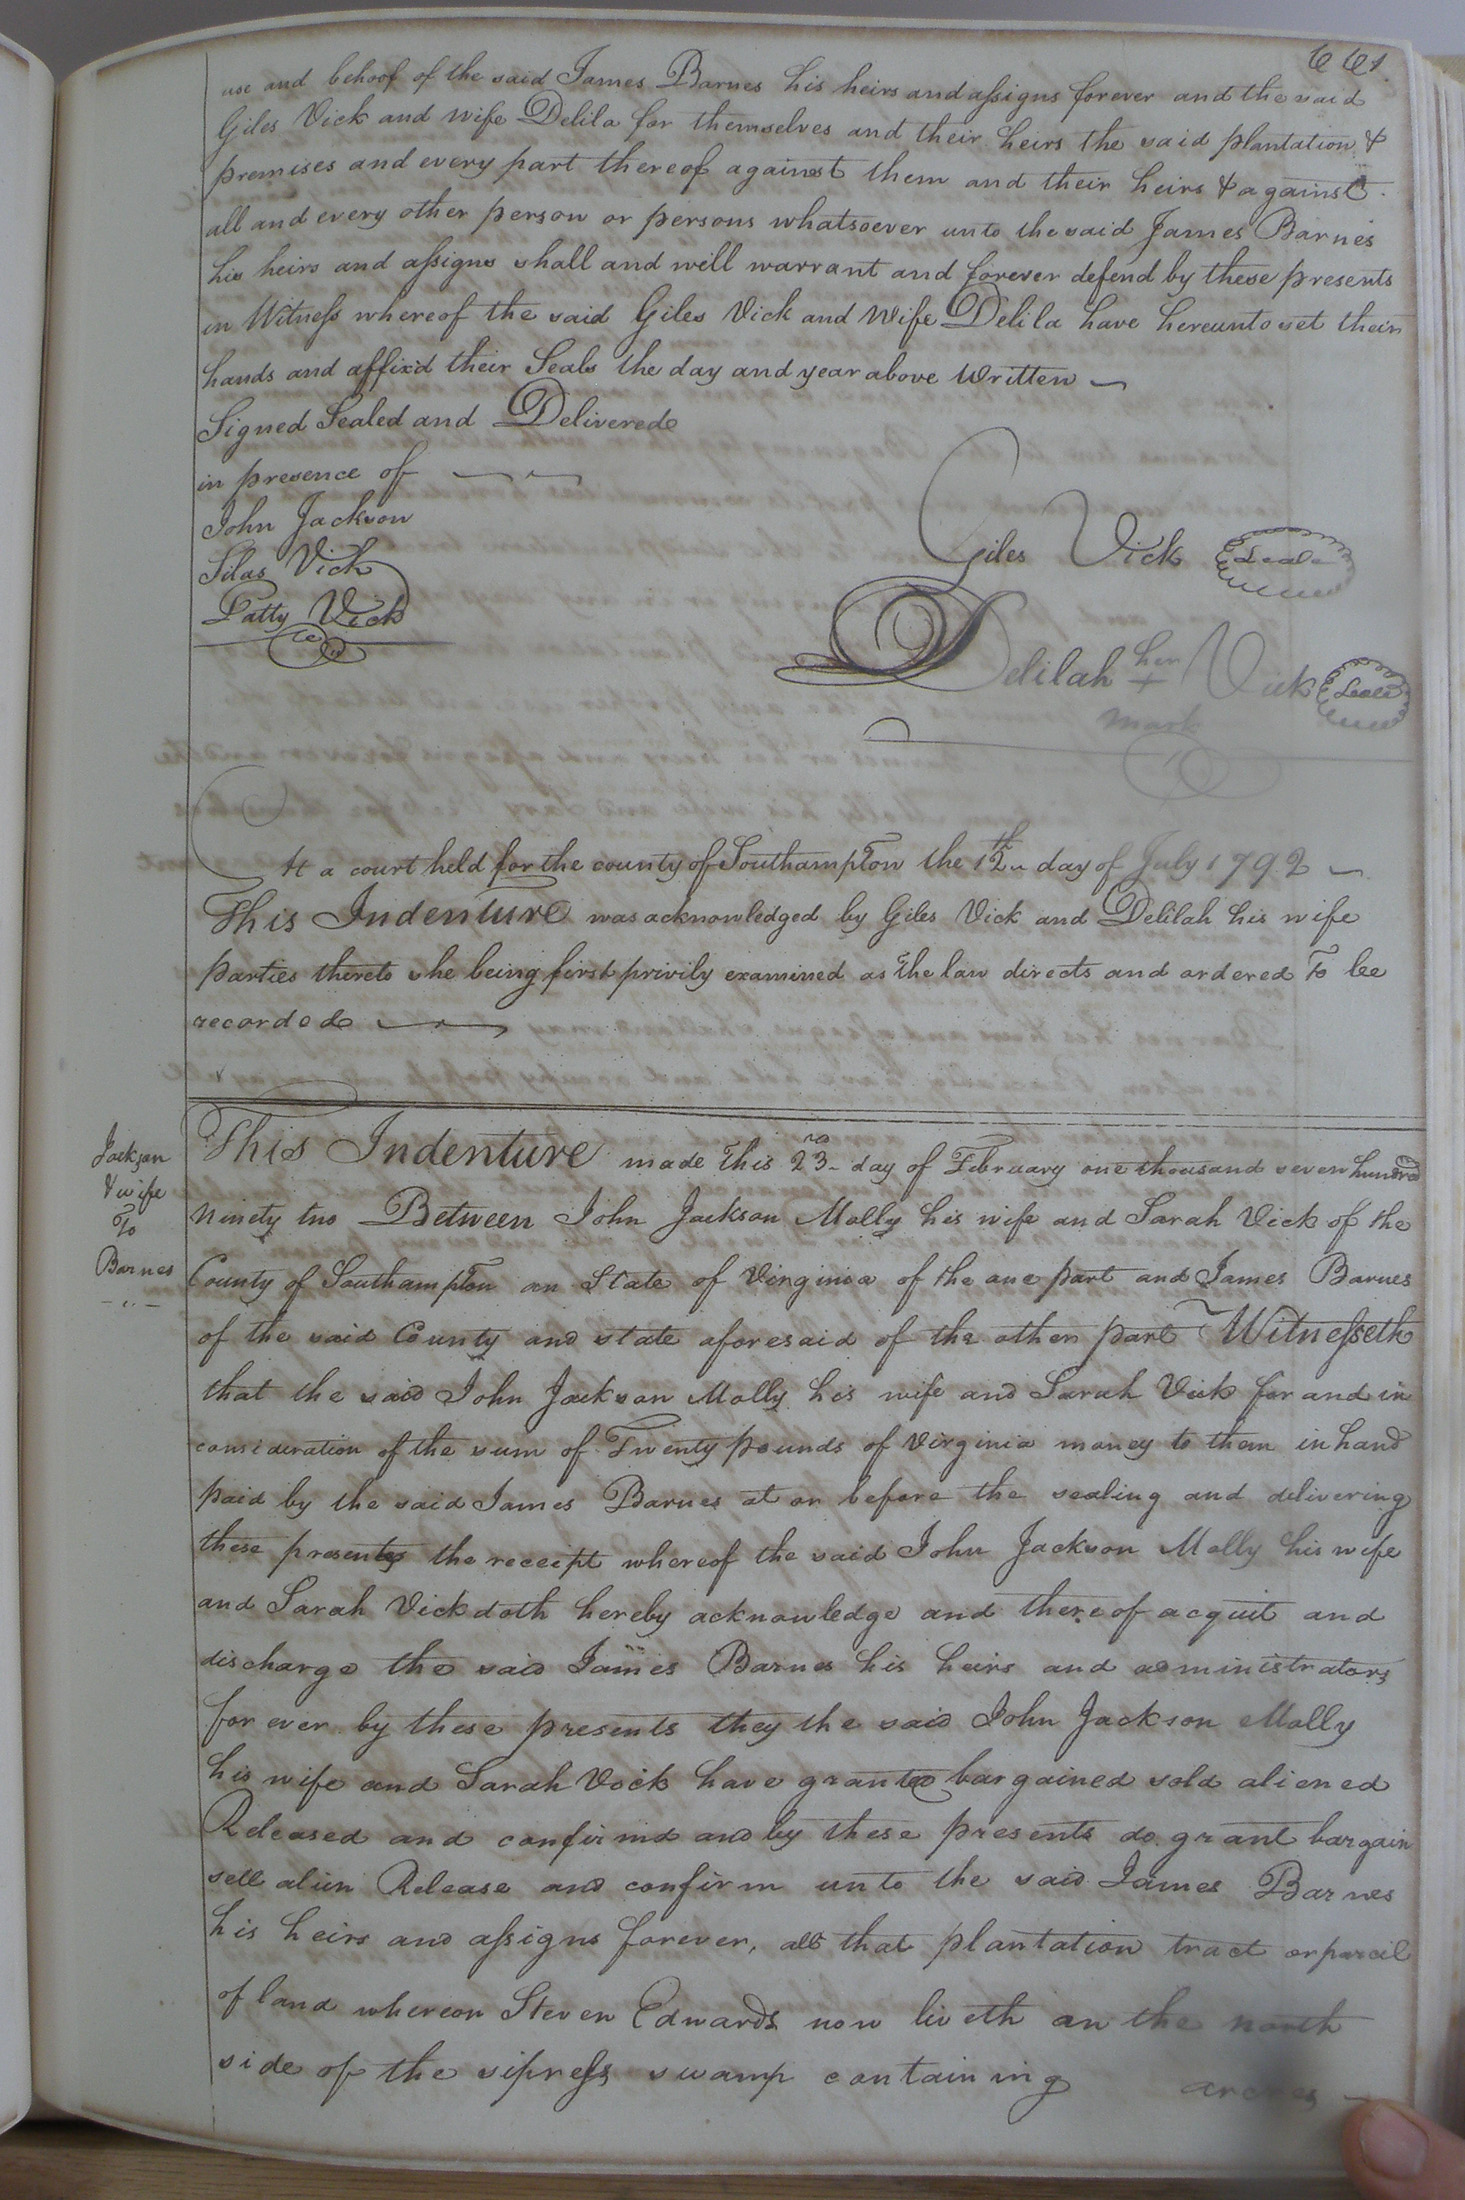 661
use and behoof of the said James Barnes his heirs and assigns forever and the said
Giles Vick and wife Delila for themselves and their heirs the said plantation &
premises and every part thereof against them and their heirs & against
all and every other person or persons whatsoever unto the said James Barnes
his heirs and assigns shall and will warrant and forever defend by these presents
in Witness whereof the said Giles Vick and Wife Delila have hereunto set their
hands and affix'd their Seals the day and year above Written
Signed Sealed and Delivered
in presence of
John Jackson
Silas Vick
Patty Vick
Giles Vick Seal
Delilah her + mark Vick Seal
At a court held for the county of Southampton the 12th day of July 1792
This Indenture was acknowledged by Giles Vick and Delilah his wife
parties thereto she being first privily examined as the law directs and ordered To be
recorded
Jackson
& wife
To
Barnes
This Indenture made this 23rd day of February one thousand seven hundred
Ninety two Between John Jackson Molly his wife and Sarah Vick of the
County of Southampton an State of Virginia of the one part and James Barnes
of the said County and state aforesaid of the other part Witnesseth
that the said John Jackson Molly his wife and Sarah Vick for and in
consideration of the sum of Twenty pounds of Virginia money to them in hand
paid by the said James Barnes at or before the sealing and delivering
these presents the receipt whereof the said John Jackson Molly his wife
and Sarah Vick doth hereby acknowledge and thereof acquit and
discharge the said James Barnes his heirs and administrators
for ever by these presents they the said John Jackson Molly
his wife and Sarah Vick have granted bargained sold aliened
Released and confirmd and by these presents do grant bargain
sell alien Release and confirm unto the said James Barnes
his heirs and assigns forever, all that plantation tract or parcil
of land whereon Steven Edwards now liveth on the north
side of the sipress swamp containing arcres